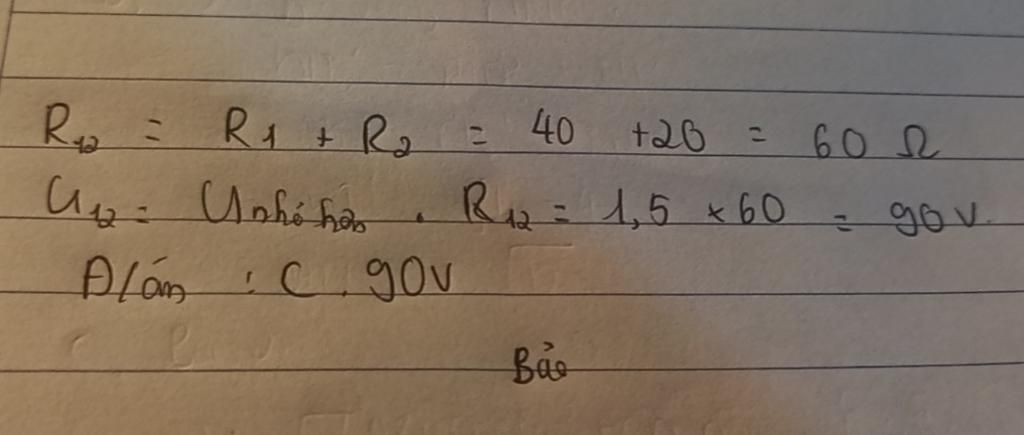 R12 = R1 + R2 = 40 +20 = 60 Ω
U12 = Unhỏ hơn . R12 = 1,5 × 60 = 90 V.
Đ/án : C. 90V
Bảo